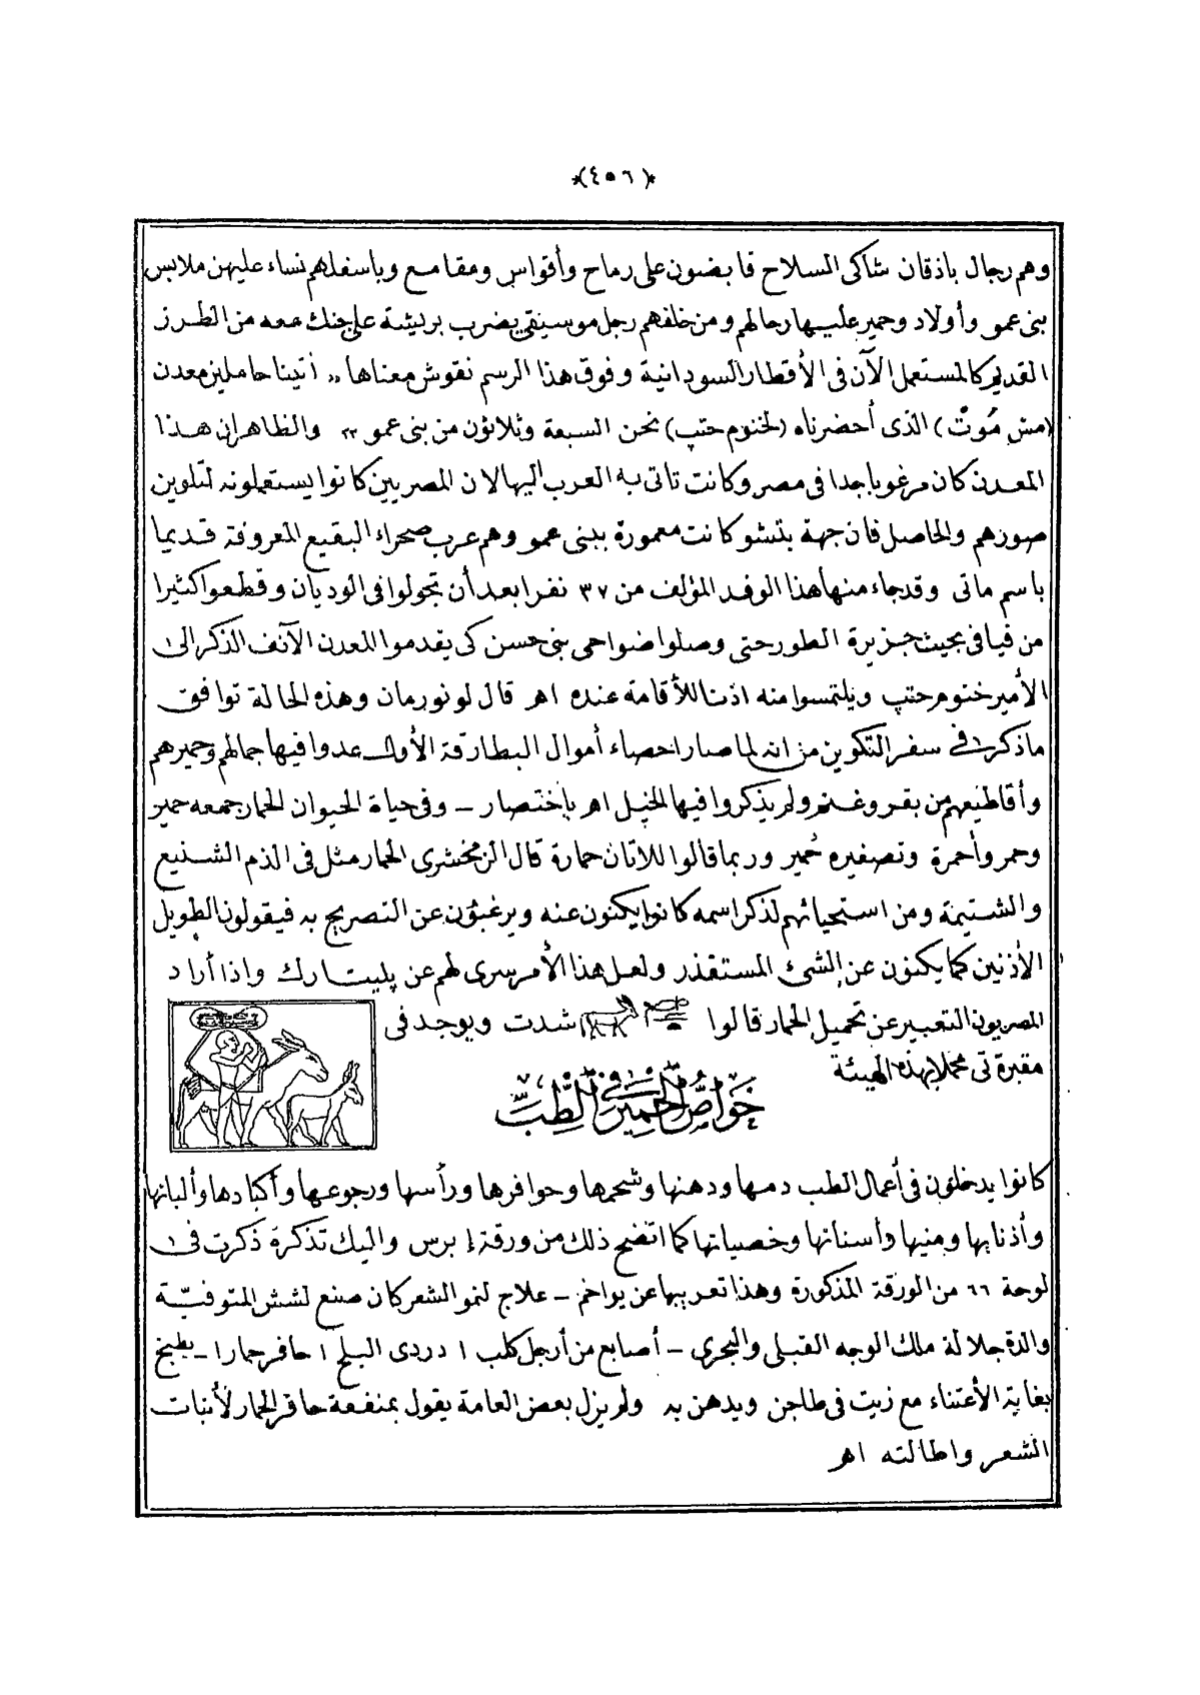 *(٤٥٦)*
وهم رجال باذقان شاكى السلاح قابضون على رماح وأقواس ومقامع وباسفلهم نساء عليهن ملابس
بنى عمو وأولاد وحمير عليها رحالهم ومن خلفهم رجل موسيقى يضرب بريشة على جنك معه من الطرز
القديم كالمستعمل الآن فى الأقطار السودانية وفوق هذا الرسم نقوش معناها ,, أتينا حاملين معدن
(مش مُوتْ) الذى أحضرناه (لخنوم حتپ) نحن السبعة وثلاثون من بنى عمو ,, والظاهر إن هذا
المعدن كان مرغوبا جدا فى مصر وكانت تاتى به العرب اليها لان المصريين كانوا يستعملونه لتلوين
صورهم والحاصل فان جهة بتشو كانت معمورة ببنى عمو وهم عرب صحراء البقيع المعروفة قديما
باسم ماتى وقد جاء منها هذا الوفد المؤلف من ٣٧ نفرا بعد أن تجولوا فى الوديان وقطعوا كثيرا
من فيافى بحيث جزيرة الطور حتى وصلوا ضواحى بنى حسن كى يقدموا المعدن الآنف الذكر إلى
الأمير ختوم حتپ ويلتمسوا منه اذنا للأقامة عنده اهر قال لونورمان وهذه الحالة توافق
ما ذكر فى سفر التكوين من انه لما صار احصاء أموال البطارقة الأول عدوا فيها جمالهم وحميرهم
وأقاطيعهم من بقر وغنم ولم يذكروا فيها الخيل اهر بإختصار ــ وفى حياة الحيوان الحمار جمعه حمير
وحمر وأحمرة وتصغيره حُمير وربما قالوا للاتان حمارة قال الزمخشرى الحمار مثل فى الذم الشنيع
والشتيمة ومن استحيائهم لذكر اسمه كانوا يكنون عنه ويرغبون عن التصريح به فيقولون الطويل
الأذنين كما يكنون عن الشئ المستقذر ولعل هذا الأمر سرى لهم عن پليتارك واذا أراد
المصريون التعبير عن تحميل الحمار قالوا شدت ويوجد فى
مقبرة تى محملا بهذه الهيئة
خَواصُّ الحمير فى الطِبّ
كانوا يدخلون فى أعمال الطب دمها ودهنها وشحمها وحوافرها ورأسها ورجوعها وأكبادها وألبانها
وأذنابها ومنيها وأسنانها وخصياتها كما اتضح ذلك من ورقة إبرس واليك تذكرة ذكرت فى
لوحة ٦٦ من الورقة المذكورة وهذا تعريبها عن يواخم ــ علاج لنمو الشعر كان صنع لشش المتوفيّة
والدة جلالة ملك الوجه القبلى والبحرى ــ أصابع من أرجل كلب ١ دردى البلح ١ حافر حمار ١ ــ يطبخ
بغاية الأعتناء مع زيت فى طاجن ويدهن به ولم يزل بعض العامة يقول بمنفعة حافر الحمار لأنبات
الشعر واطالته اهر